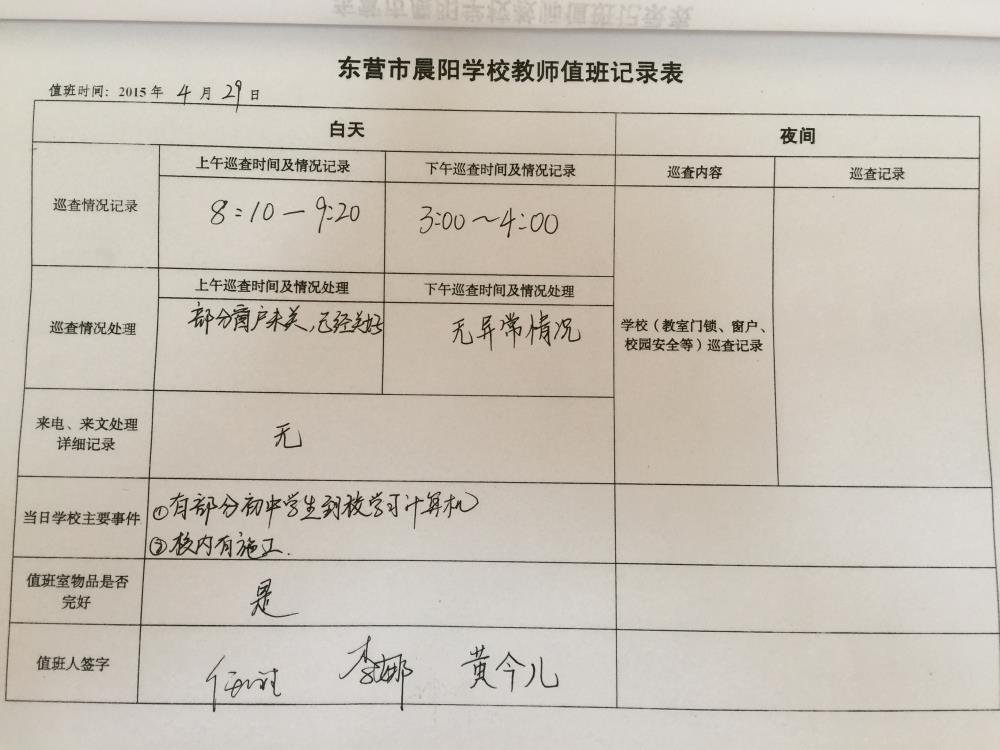 东营市晨阳学校教师值班记录表
值班时间：2015 年 4 月 29 日
白天
夜间
巡查情况记录
上午巡查时间及情况记录
下午巡查时间及情况记录
巡查内容
巡查记录
8：10 — 9：20
3:00 ～ 4:00
巡查情况处理
上午巡查时间及情况处理
下午巡查时间及情况处理
部分窗户未关，已经关好
无异常情况
学校（教室门锁、窗户、
校园安全等）巡查记录
来电、来文处理
详细记录
无
当日学校主要事件
①有部分初中学生到校学习计算机
②校内有施工.
值班室物品是否
完好
是
值班人签字
李娜
黄今儿